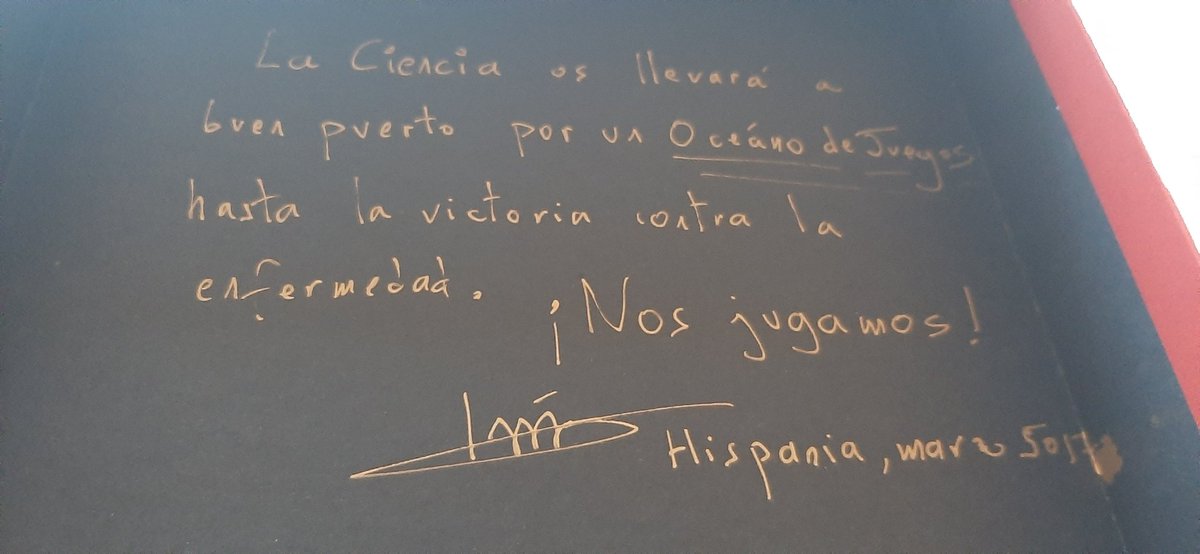 La Ciencia os llevará a
buen puerto por un Oceáno de Juegos
hasta la victoria contra la
enfermedad.
¡Nos jugamos!
Hispania, marzo